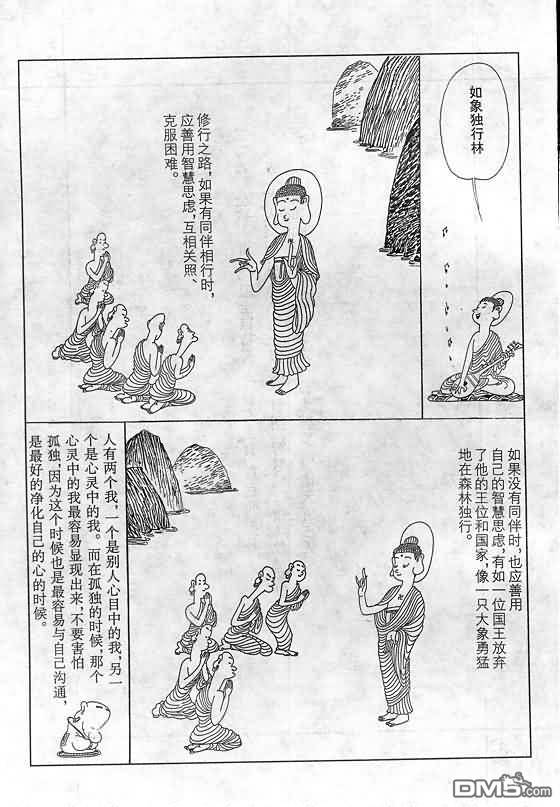 如象独行林
修行之路，如果有同伴相行时，
应善用智慧思虑，互相关照、
克服困难。
如果没有同伴时，也应善用
自己的智慧思虑，有如一位国王放弃
了他的王位和国家，像一只大象勇猛
地在森林独行。
人有两个我，一个是别人心目中的我，另一
个是心灵中的我。而在孤独的时候，那个
心灵中的我最容易显现出来，不要害怕
孤独，因为这个时候也是最容易与自己沟通，
是最好的净化自己的心的时候。
DM5.com